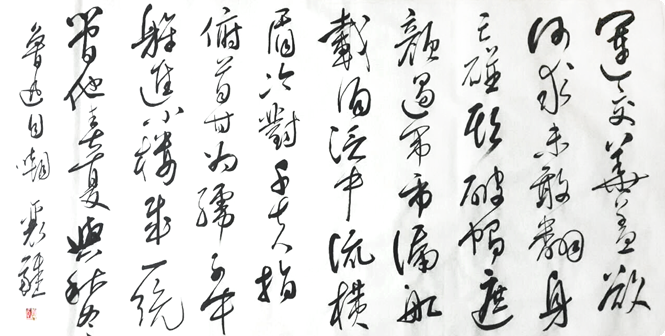 運交華蓋欲
何求未敢翻身
已碰頭破帽遮
顏過鬧市漏船
載酒泛中流橫
眉冷對千夫指
俯首甘為孺子牛
躲進小樓成一統
管他春夏與秋冬
魯迅自嘲